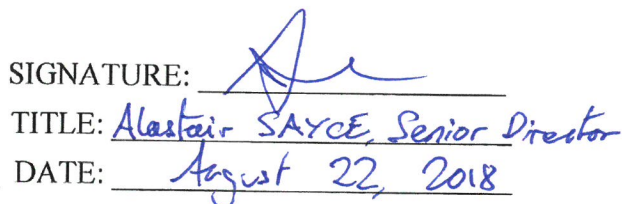 SIGNATURE:
TITLE: Alastair SAYCE, Senior Director
DATE: August 22, 2018